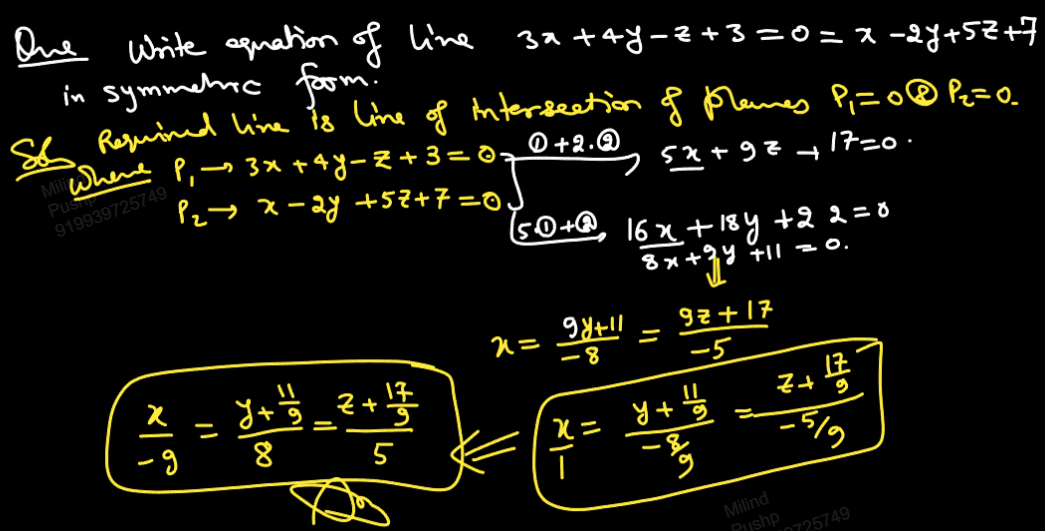 Que Write equation of line 3x + 4y - z + 3 = 0 = x - 2y + 5z + 7
in symmetric form.
Sol Required line is line of intersection of planes P₁ = 0 & P₂ = 0.
where P₁ → 3x + 4y - z + 3 = 0
① + 2.② 5x + 9z + 17 = 0.
P₂ → x - 2y + 5z + 7 = 0
5① + ② 16x + 18y + 22 = 0
8x + 9y + 11 = 0.
x = (9y+11)/-8 = (9z+17)/-5
x/1 = (y + 11/9)/(-8/9) = (z + 17/9)/(-5/9)
x/-9 = (y + 11/9)/8 = (z + 17/9)/5
Milind
Pushp
919939725749
Milind
Pushp